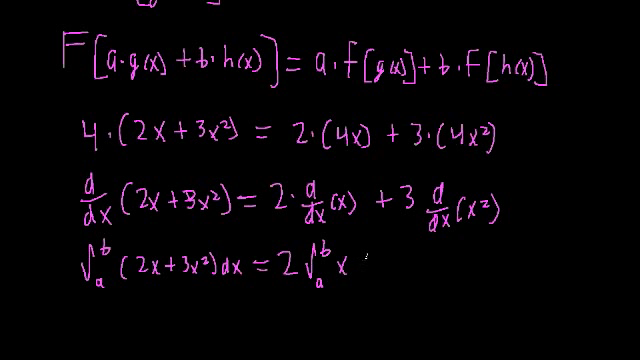 F[a·g(x) + b·h(x)] = a·F[g(x)] + b·F[h(x)]
4·(2x + 3x²) = 2·(4x) + 3·(4x²)
d/dx (2x + 3x²) = 2·d/dx (x) + 3 d/dx (x²)
∫ₐᵇ (2x + 3x²) dx = 2 ∫ₐᵇ x